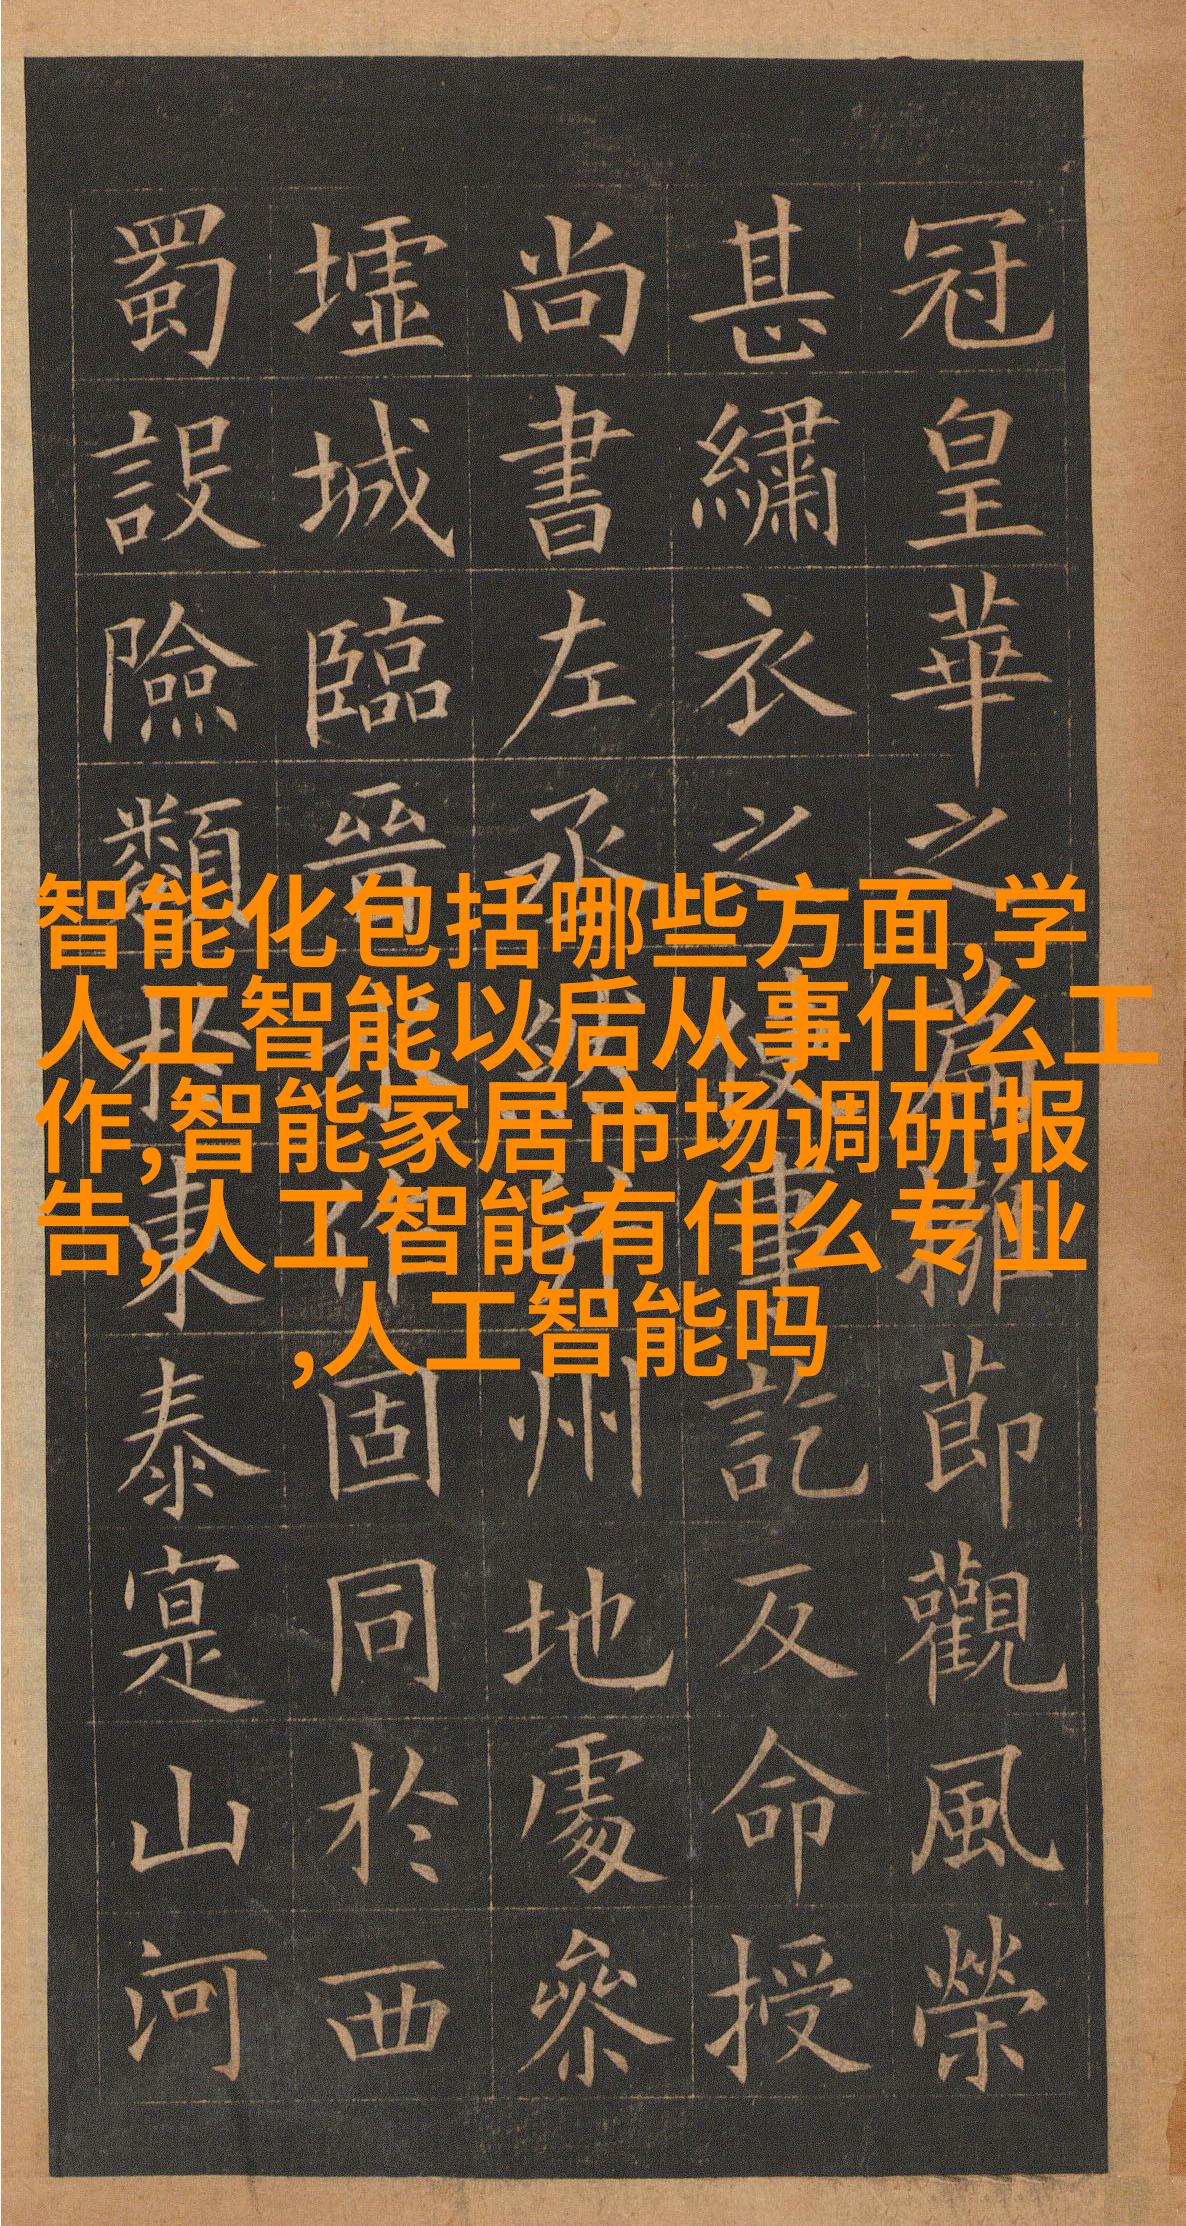 冠皇華之節觀風榮
甚繡衣之使事訖反命授
尚書左丞州地處參
墟城臨晉水作固同於西
蜀設險類東泰寔山河
智能化包括哪些方面,学
人工智能以后从事什么工
作,智能家居市场调研报
告,人工智能有什么专业
,人工智能吗